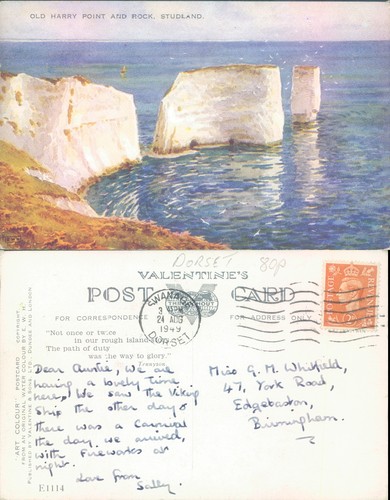 OLD HARRY POINT AND ROCK, STUDLAND.
DORSET 80p
VALENTINE'S
POST CARD
FOR CORRESPONDENCE
FOR ADDRESS ONLY
SWANAGE
24 AUG
1949
DORSET
"Not once or twice
in our rough island
The path of duty
was the way to glory."
Tennyson
Dear Auntie, We are
having a lovely time
here, We saw the Viking
Ship the other day &
there was a Carnival
the day we arrived,
with Fireworks at
night.
Love From
Sally.
Miss G. M. Whitfield,
47, York Road,
Edgebaston,
Birmingham.
"ART COLOUR" POSTCARD COPYRIGHT
FROM AN ORIGINAL WATER COLOUR BY E. W.
PUBLISHED BY VALENTINE & SONS LTD. DUNDEE AND LONDON
E1114